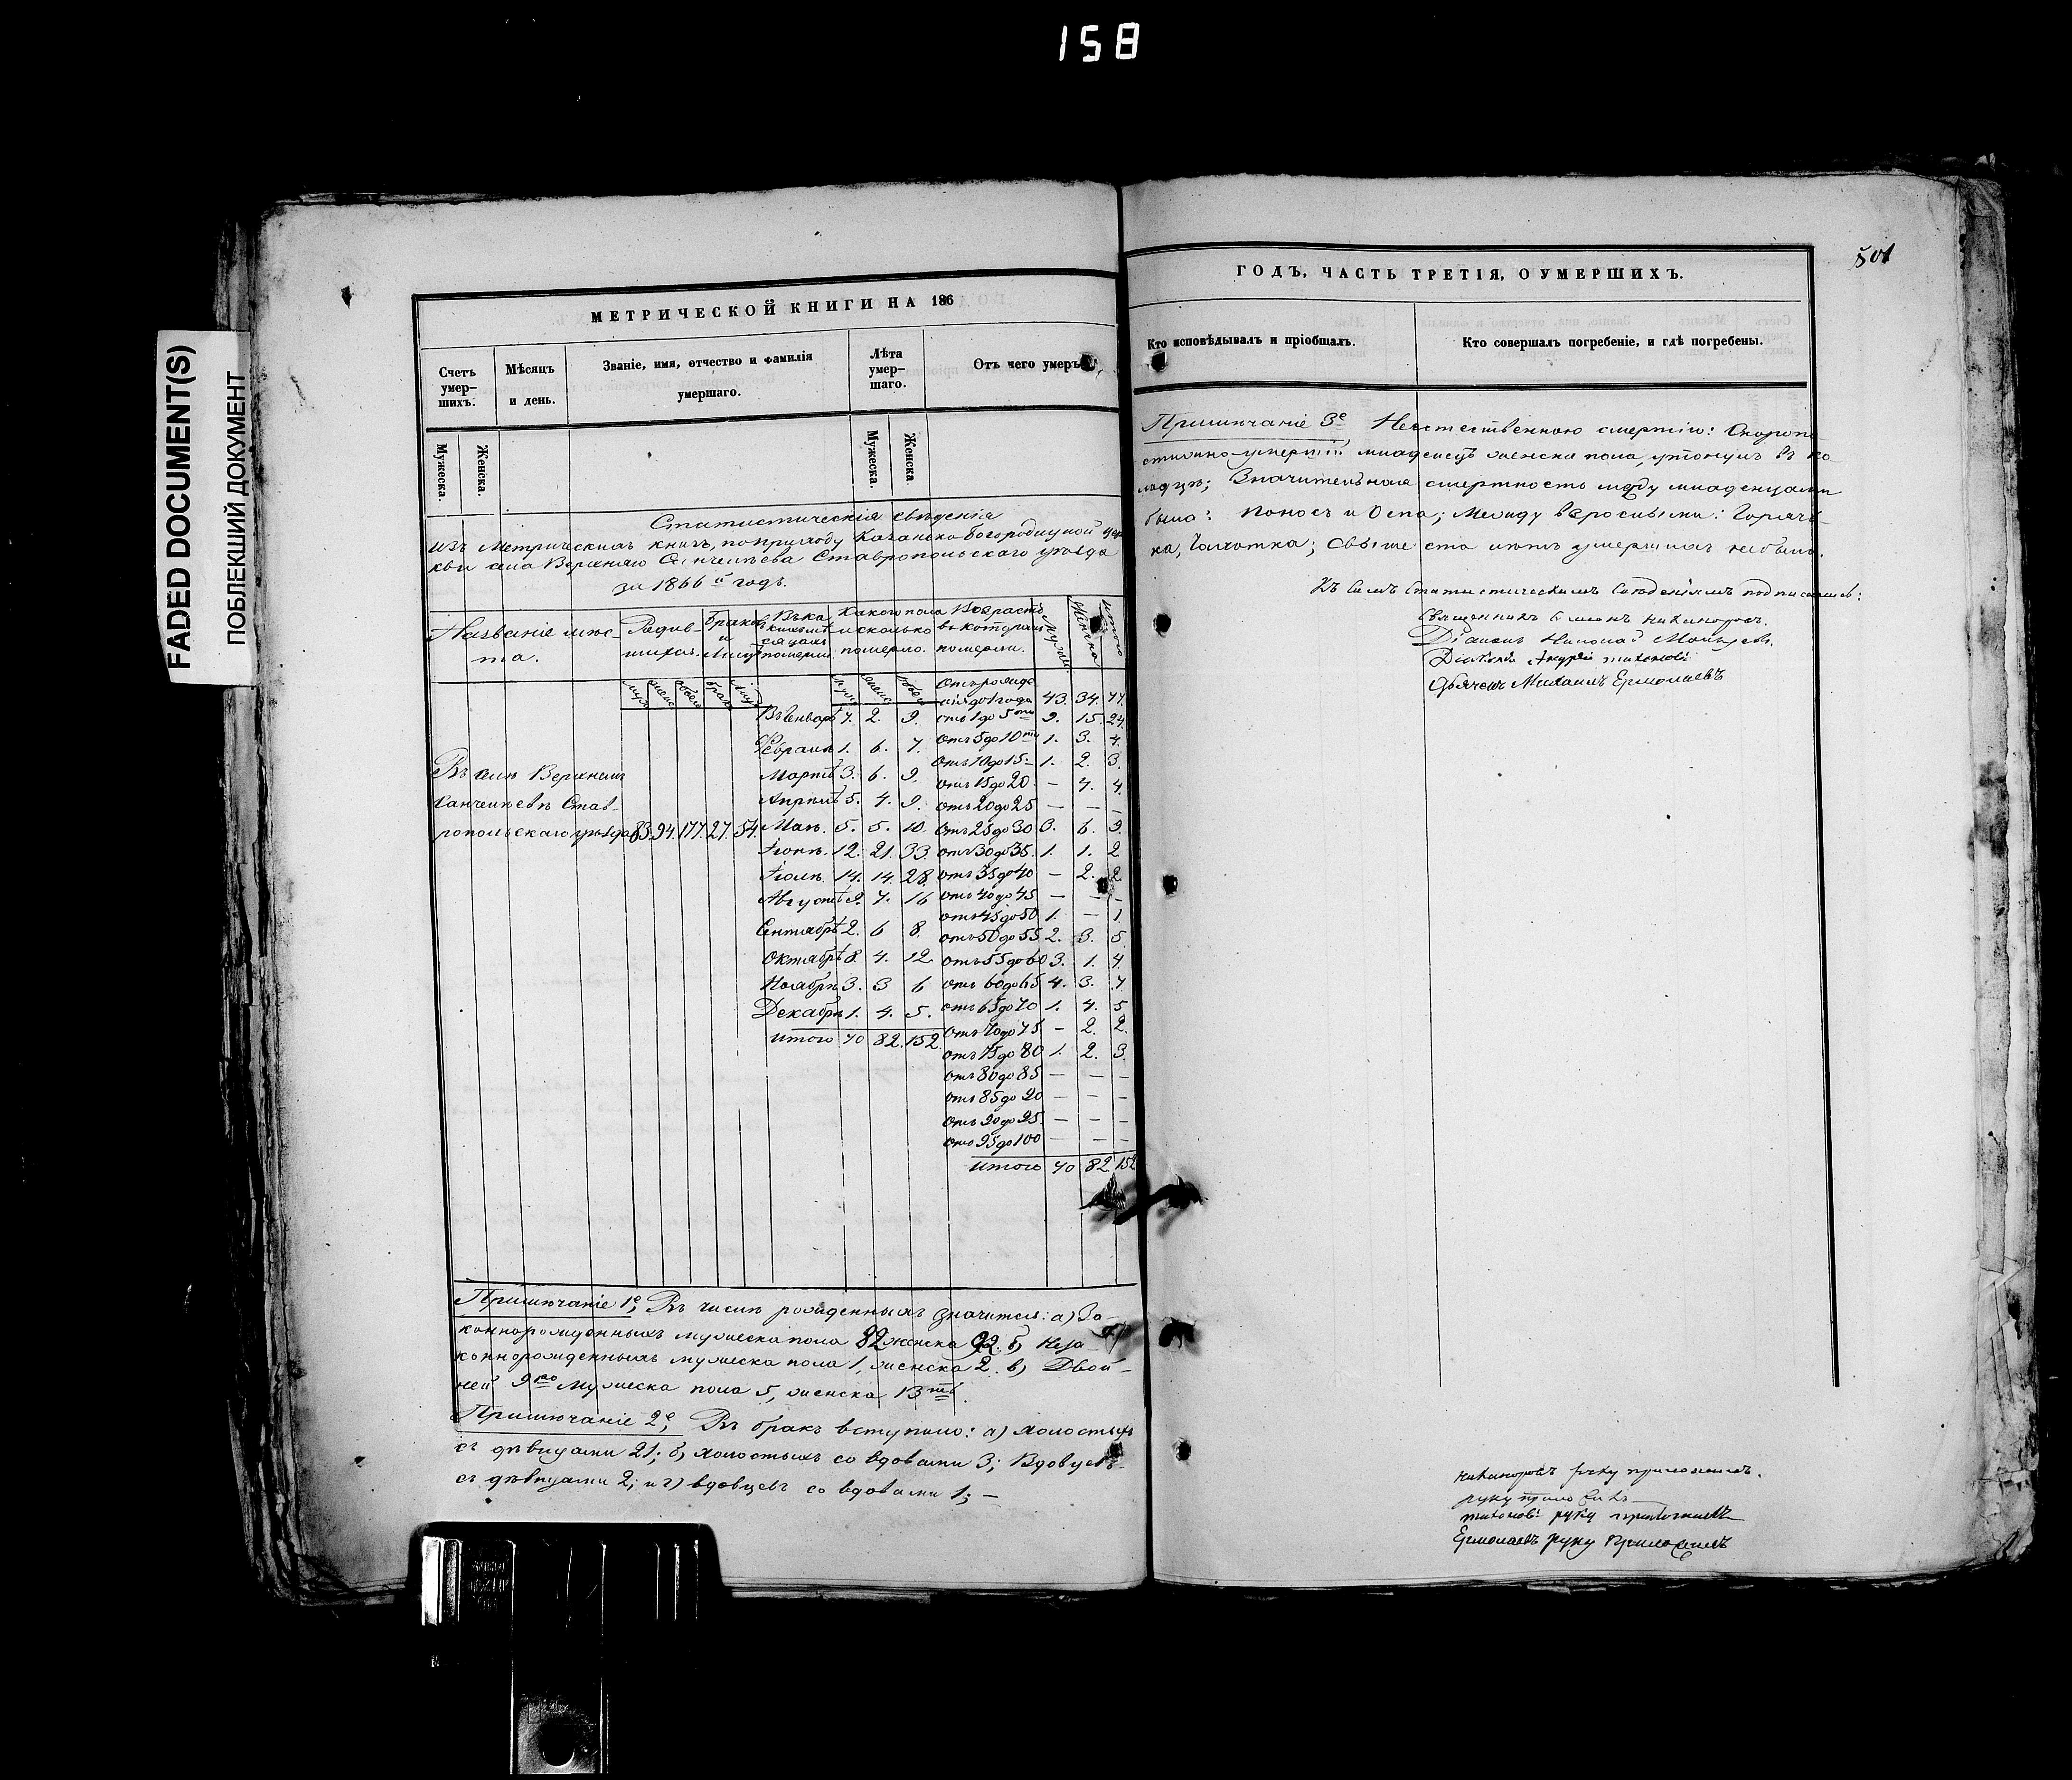 158
501
FADED DOCUMENT(S)
ПОБЛЕКШИЙ ДОКУМЕНТ
МЕТРИЧЕСКОЙ КНИГИ НА 186
Счетъ умер-шихъ.
Мѣсяцъ и день.
Званіе, имя, отчество и фамилія умершаго.
Лѣта умер-шаго.
Отъ чего умеръ
Мужеска. Женска.
Мужеска. Женска
Статистическія свѣденія
изъ Метрическихъ книгъ, по приходу Казанско-Богородицкой цер
кви села Верхняго Санчелѣева Ставропольскаго уѣзда
за 1866 й годъ.
Названіе мѣс-
та.
Родив-
шихся.
Браковъ
и
Лицъ
Въ ка
кихъ мѣ
сяцахъ
померли.
Какого пола
и сколько
померло.
Возрастъ
въ которомъ
померли.
Мужес.
Женска
Итого
муж женс обоего брак Лицъ
муж женс обоего
Отъ рожде
нія до 1 года 43. 34. 77.
Въ Январѣ 7. 2. 9. отъ 1 до 5 ти 9. 15. 24.
Февралѣ 1. 6. 7. Отъ 5 до 10 ти 1. 3. 4.
Отъ 10 до 15 1. 2. 3.
Въ селѣ Верхнемъ Мартѣ 3. 6. 9. отъ 15 до 20 — 4. 4.
Санчелѣевѣ Став- Апрѣлѣ 5. 4. 9. отъ 20 до 25 — — —
ропольскаго уѣзда 83. 94. 177. 27. 54. Маѣ. 5. 5. 10. Отъ 25 до 30 3. 6. 9.
Іюнѣ. 12. 21. 33. отъ 30 до 35. 1. 1. 2
Іюлѣ. 14. 14. 28. отъ 35 до 40 — 2. 2
Августѣ 9. 7. 16 отъ 40 до 45 — — —
отъ 45 до 50 1. — 1
Сентябрѣ 2. 6 8. отъ 50 до 55 2. 3. 5.
Октябрѣ 8. 4. 12. отъ 55 до 60 3. 1. 4.
Ноябрѣ 3. 3 6 отъ 60 до 65 4. 3. 7
Декабрѣ 1. 4. 5. отъ 65 до 70 1. 4. 5
итого 70 82. 152. отъ 70 до 75 — 2. 2.
отъ 75 до 80 1. 2. 3.
отъ 80 до 85 — — —
отъ 85 до 90 — — —
отъ 90 до 95. — — —
отъ 95 до 100 — — —
итого 70 82 152
Примѣчаніе 1е, Въ числѣ рожденныхъ значится: а) За-
коннорожденныхъ мужеска пола 82 женска 92. б) Неза-
коннорожденныхъ мужеска пола 1, женска 2. в) Двой-
ней 9ро мужеска пола 5, женска 13ть.
Примѣчаніе 2е, Въ бракъ вступило: а) холостыхъ
съ дѣвицами 21; б) холостыхъ со вдовами 3; Вдовцевъ
съ дѣвицами 2; и г) вдовцевъ со вдовами 1; —
ГОДЪ, ЧАСТЬ ТРЕТІЯ, О УМЕРШИХЪ.
Кто исповѣдывалъ и пріобщалъ.
Кто совершалъ погребеніе, и гдѣ погребены.
Примѣчаніе 3е, Неестественною смертію: Скоропо-
стижно умершій младенецъ женска пола, утонулъ въ ко
лодцѣ; Значительная смертность между младенцами
была: поносъ и Оспа; между взрослыми: Горяч
ка, Чахотка; свыше ста лѣтъ умершихъ небыло.
Къ симъ Статистическимъ Свѣденіямъ подписались:
Священникъ Симеонъ Никаноровъ.
Діаконъ Николай
Дьячекъ Михаилъ Ермолаевъ
Никаноровъ руку приложилъ.
руку приложилъ
Тихоновъ руку приложилъ
Ермолаевъ руку приложилъ